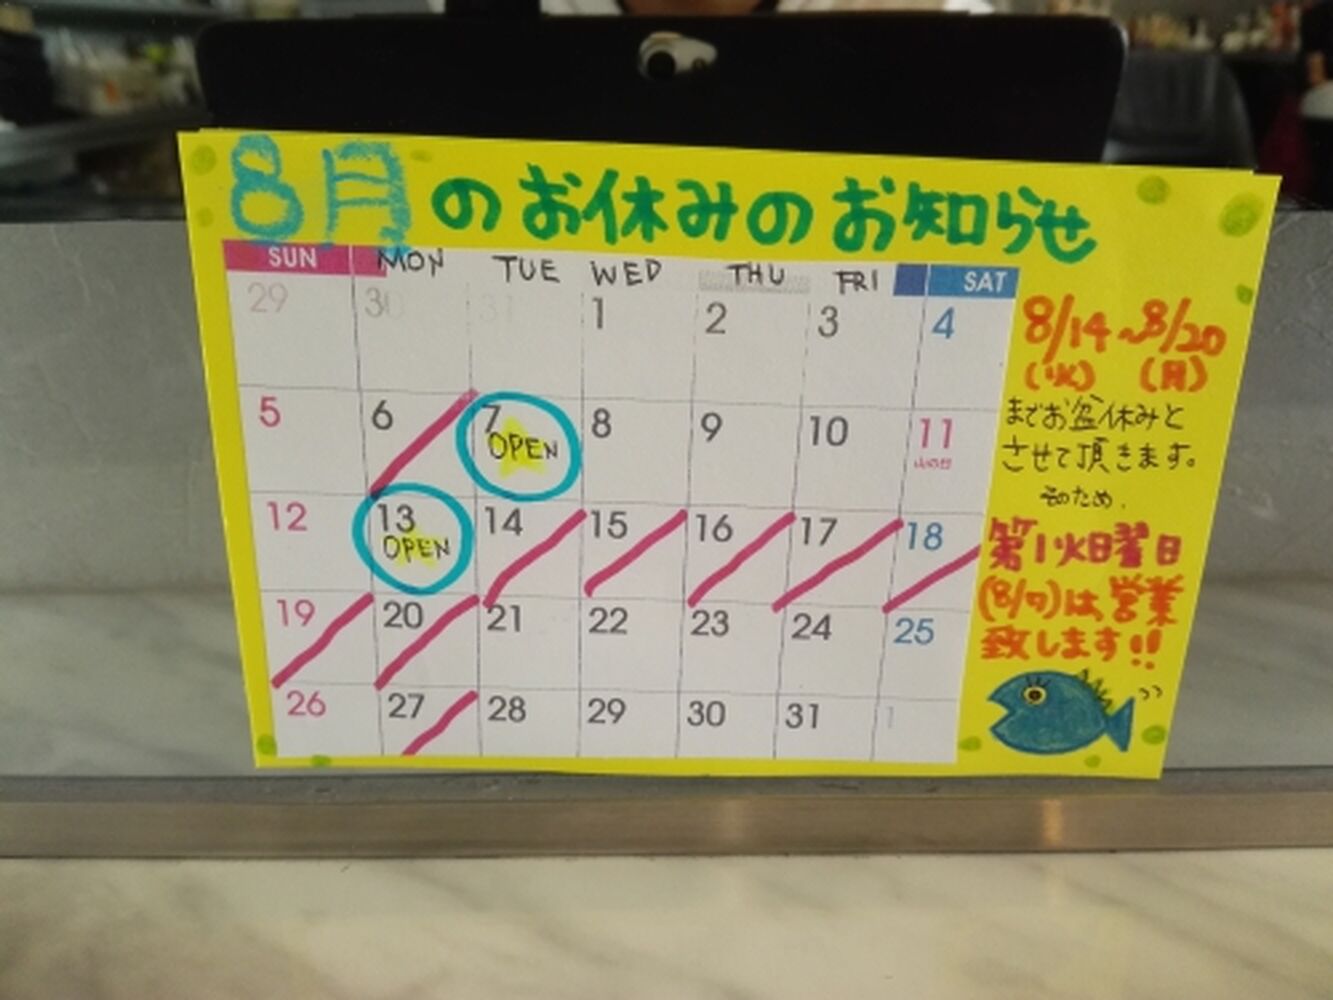 8月のお休みのお知らせ
SUN MON TUE WED THU FRI SAT
29 30 31 1 2 3 4
5 6 7 8 9 10 11
OPEN 山の日
12 13 14 15 16 17 18
OPEN
19 20 21 22 23 24 25
26 27 28 29 30 31 1
8/14~8/20
(火) (月)
までお盆休みと
させて頂きます。
そのため、
第1火曜日
(8/7)は、営業
致します!!